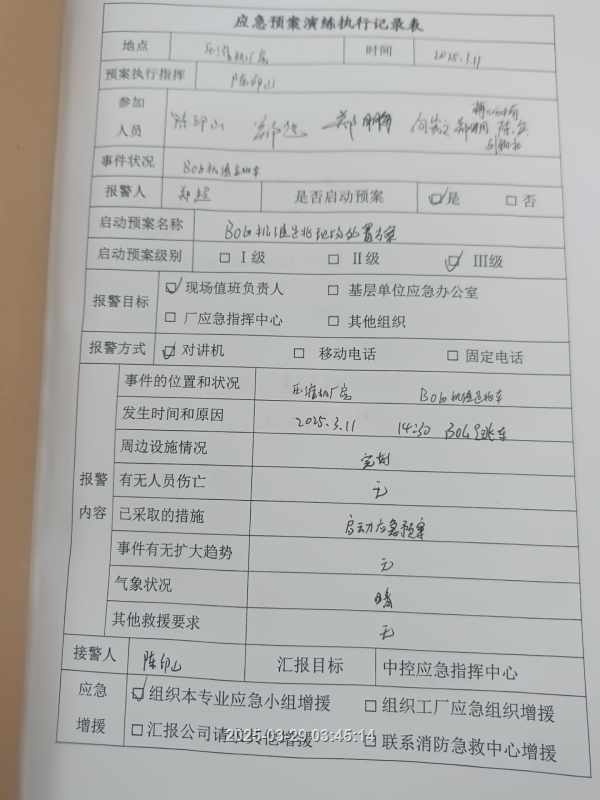 应急预案演练执行记录表
地点 压缩机厂房 时间 2025.3.11
预案执行指挥 陈印山
参加人员 陈印山 郑超 郑鹏
事件状况 BOG机组
报警人 郑超 是否启动预案 ☑是 □否
启动预案名称 BOG机组 现场处置方案
启动预案级别 □ I级 □ II级 ☑ III级
报警目标 ☑现场值班负责人 □ 基层单位应急办公室
□ 厂应急指挥中心 □ 其他组织
报警方式 ☑对讲机 □ 移动电话 □ 固定电话
报警内容
事件的位置和状况 压缩机厂房 BOG机组
发生时间和原因 2025.3.11 14:30 BOG 跳车
周边设施情况 完好
有无人员伤亡 无
已采取的措施 启动应急预案
事件有无扩大趋势 无
气象状况 晴
其他救援要求 无
接警人 陈印山 汇报目标 中控应急指挥中心
应急增援 ☑组织本专业应急小组增援 □ 组织工厂应急组织增援
□汇报公司请求其他增援 □ 联系消防急救中心增援
2025-03-29 03:45:14